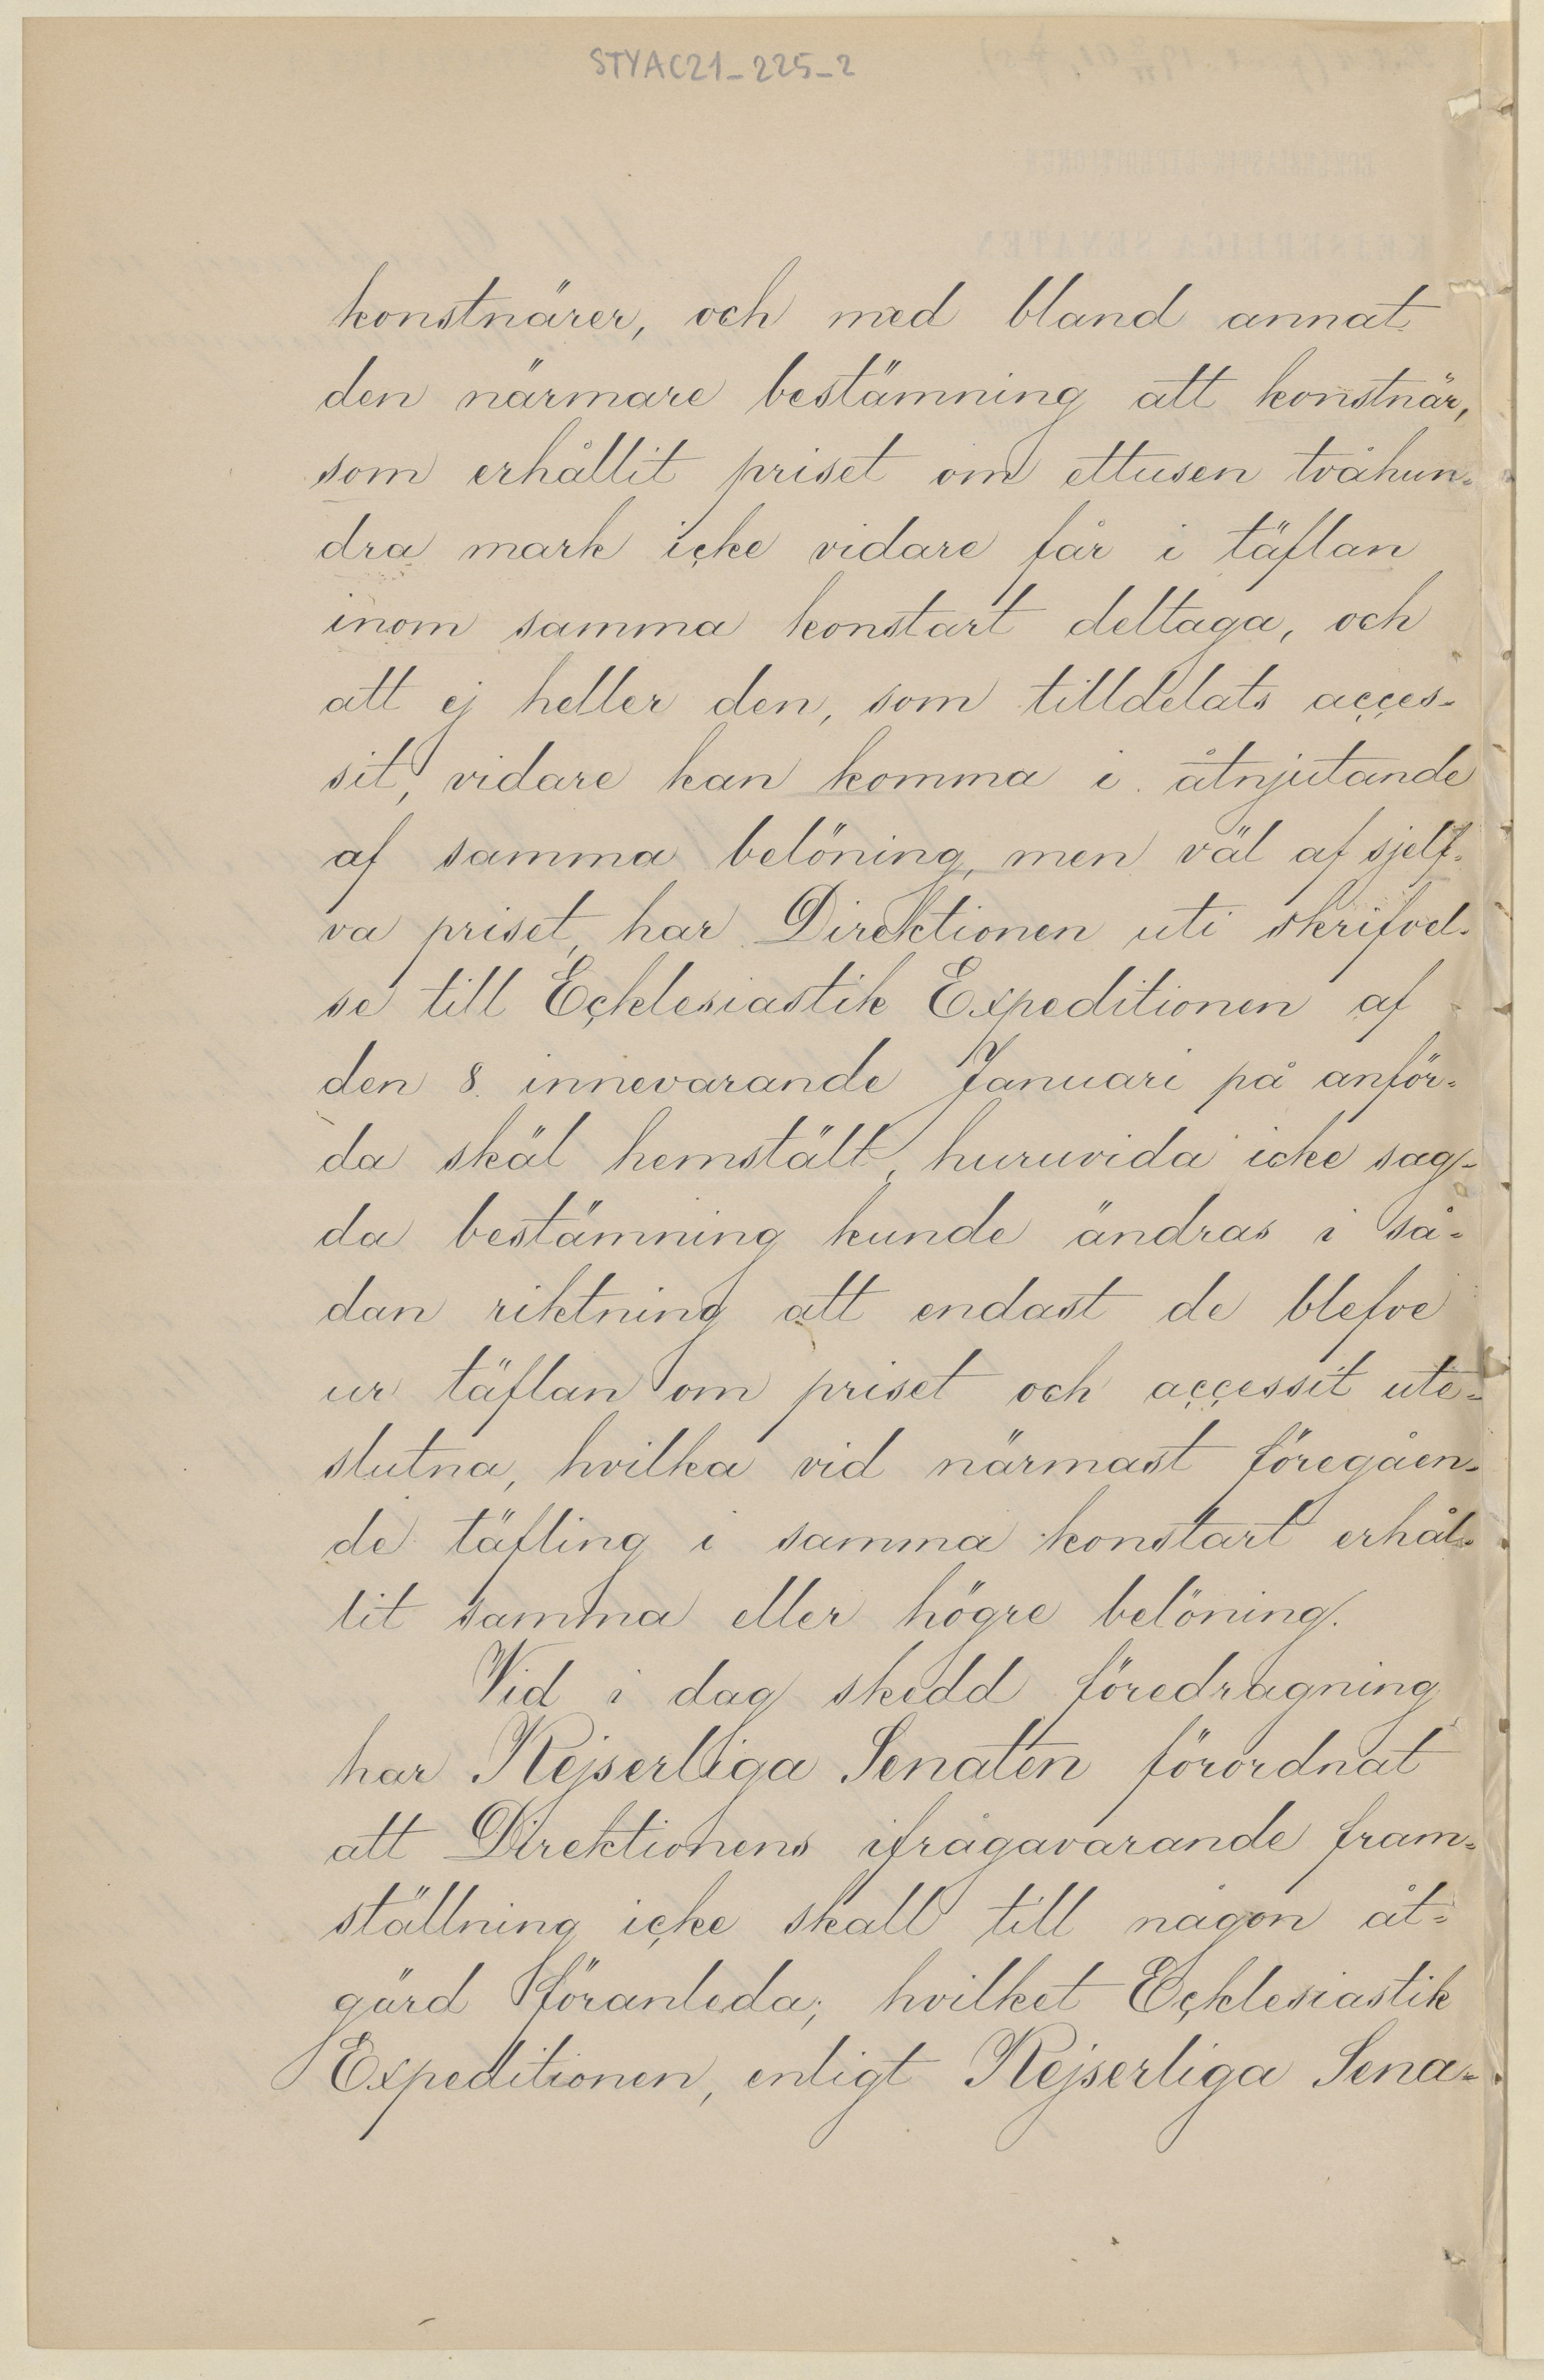 STYAC21_225_2
konstnärer, och med bland annat
den närmare bestämning att konstnär,
som erhållit priset om ettusen tvåhun-
dra mark icke vidare får i täflan
inom samma konstart deltaga, och
att ej heller den, som tilldelats acces-
sit, vidare kan komma i åtnjutande
af samma belöning, men väl af sjelf-
va priset, har Direktionen uti skrifvel-
se till Ecklesiastik Expeditionen af
den 8. innevarande Januari på anför-
da skäl hemstält, huruvida icke sag-
da bestämning kunde ändras i så-
dan riktning att endast de blefve
ur täflan om priset och accessit ute-
slutna, hvilka vid närmast föregåen-
de täfling i samma konstart erhål-
lit samma eller högre belöning.
Vid i dag skedd föredragning
har Kejserliga Senaten förordnat
att Direktionens ifrågavarande fram-
ställning icke skall till någon åt-
gärd föranleda; hvilket Ecklesiastik
Expeditionen, enligt Kejserliga Sena-